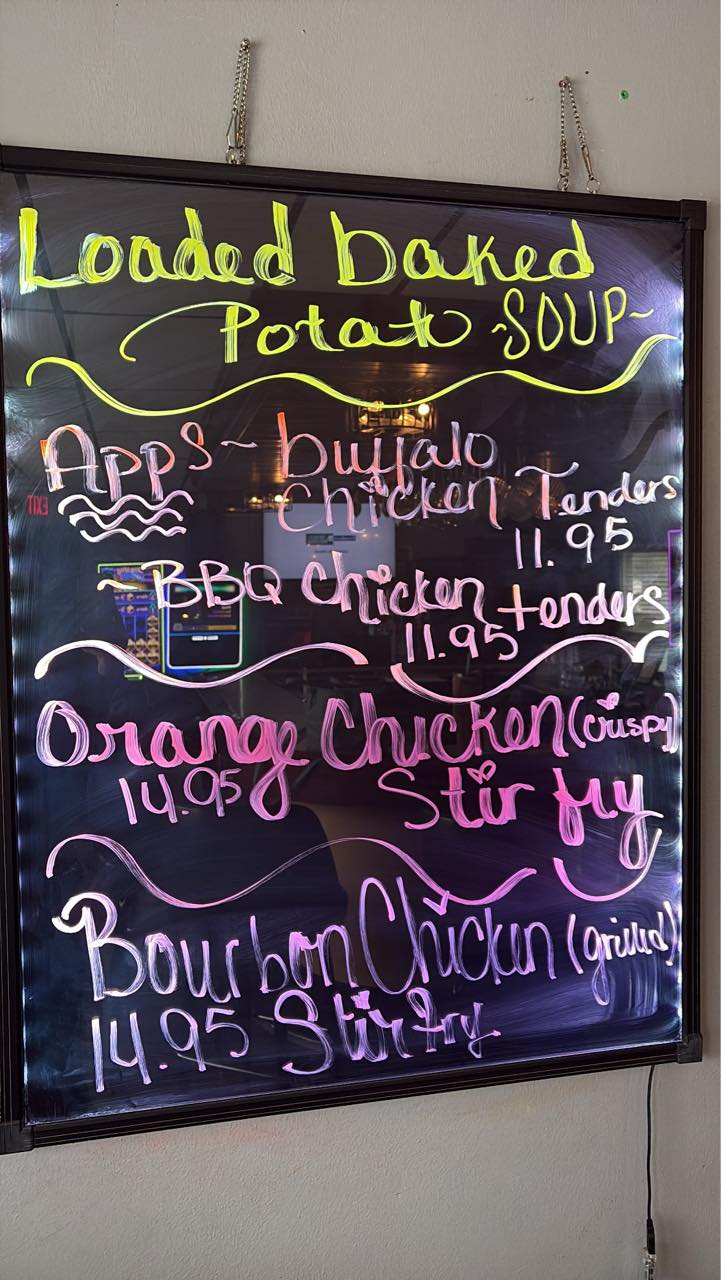 Loaded baked
Potato ~SOUP~
Apps~ buffalo
Chicken Tenders
11.95
~BBQ Chicken tenders
11.95
Orange Chicken (crispy)
14.95 Stir fry
Bourbon Chicken (grilled)
14.95 Stir fry
EXIT